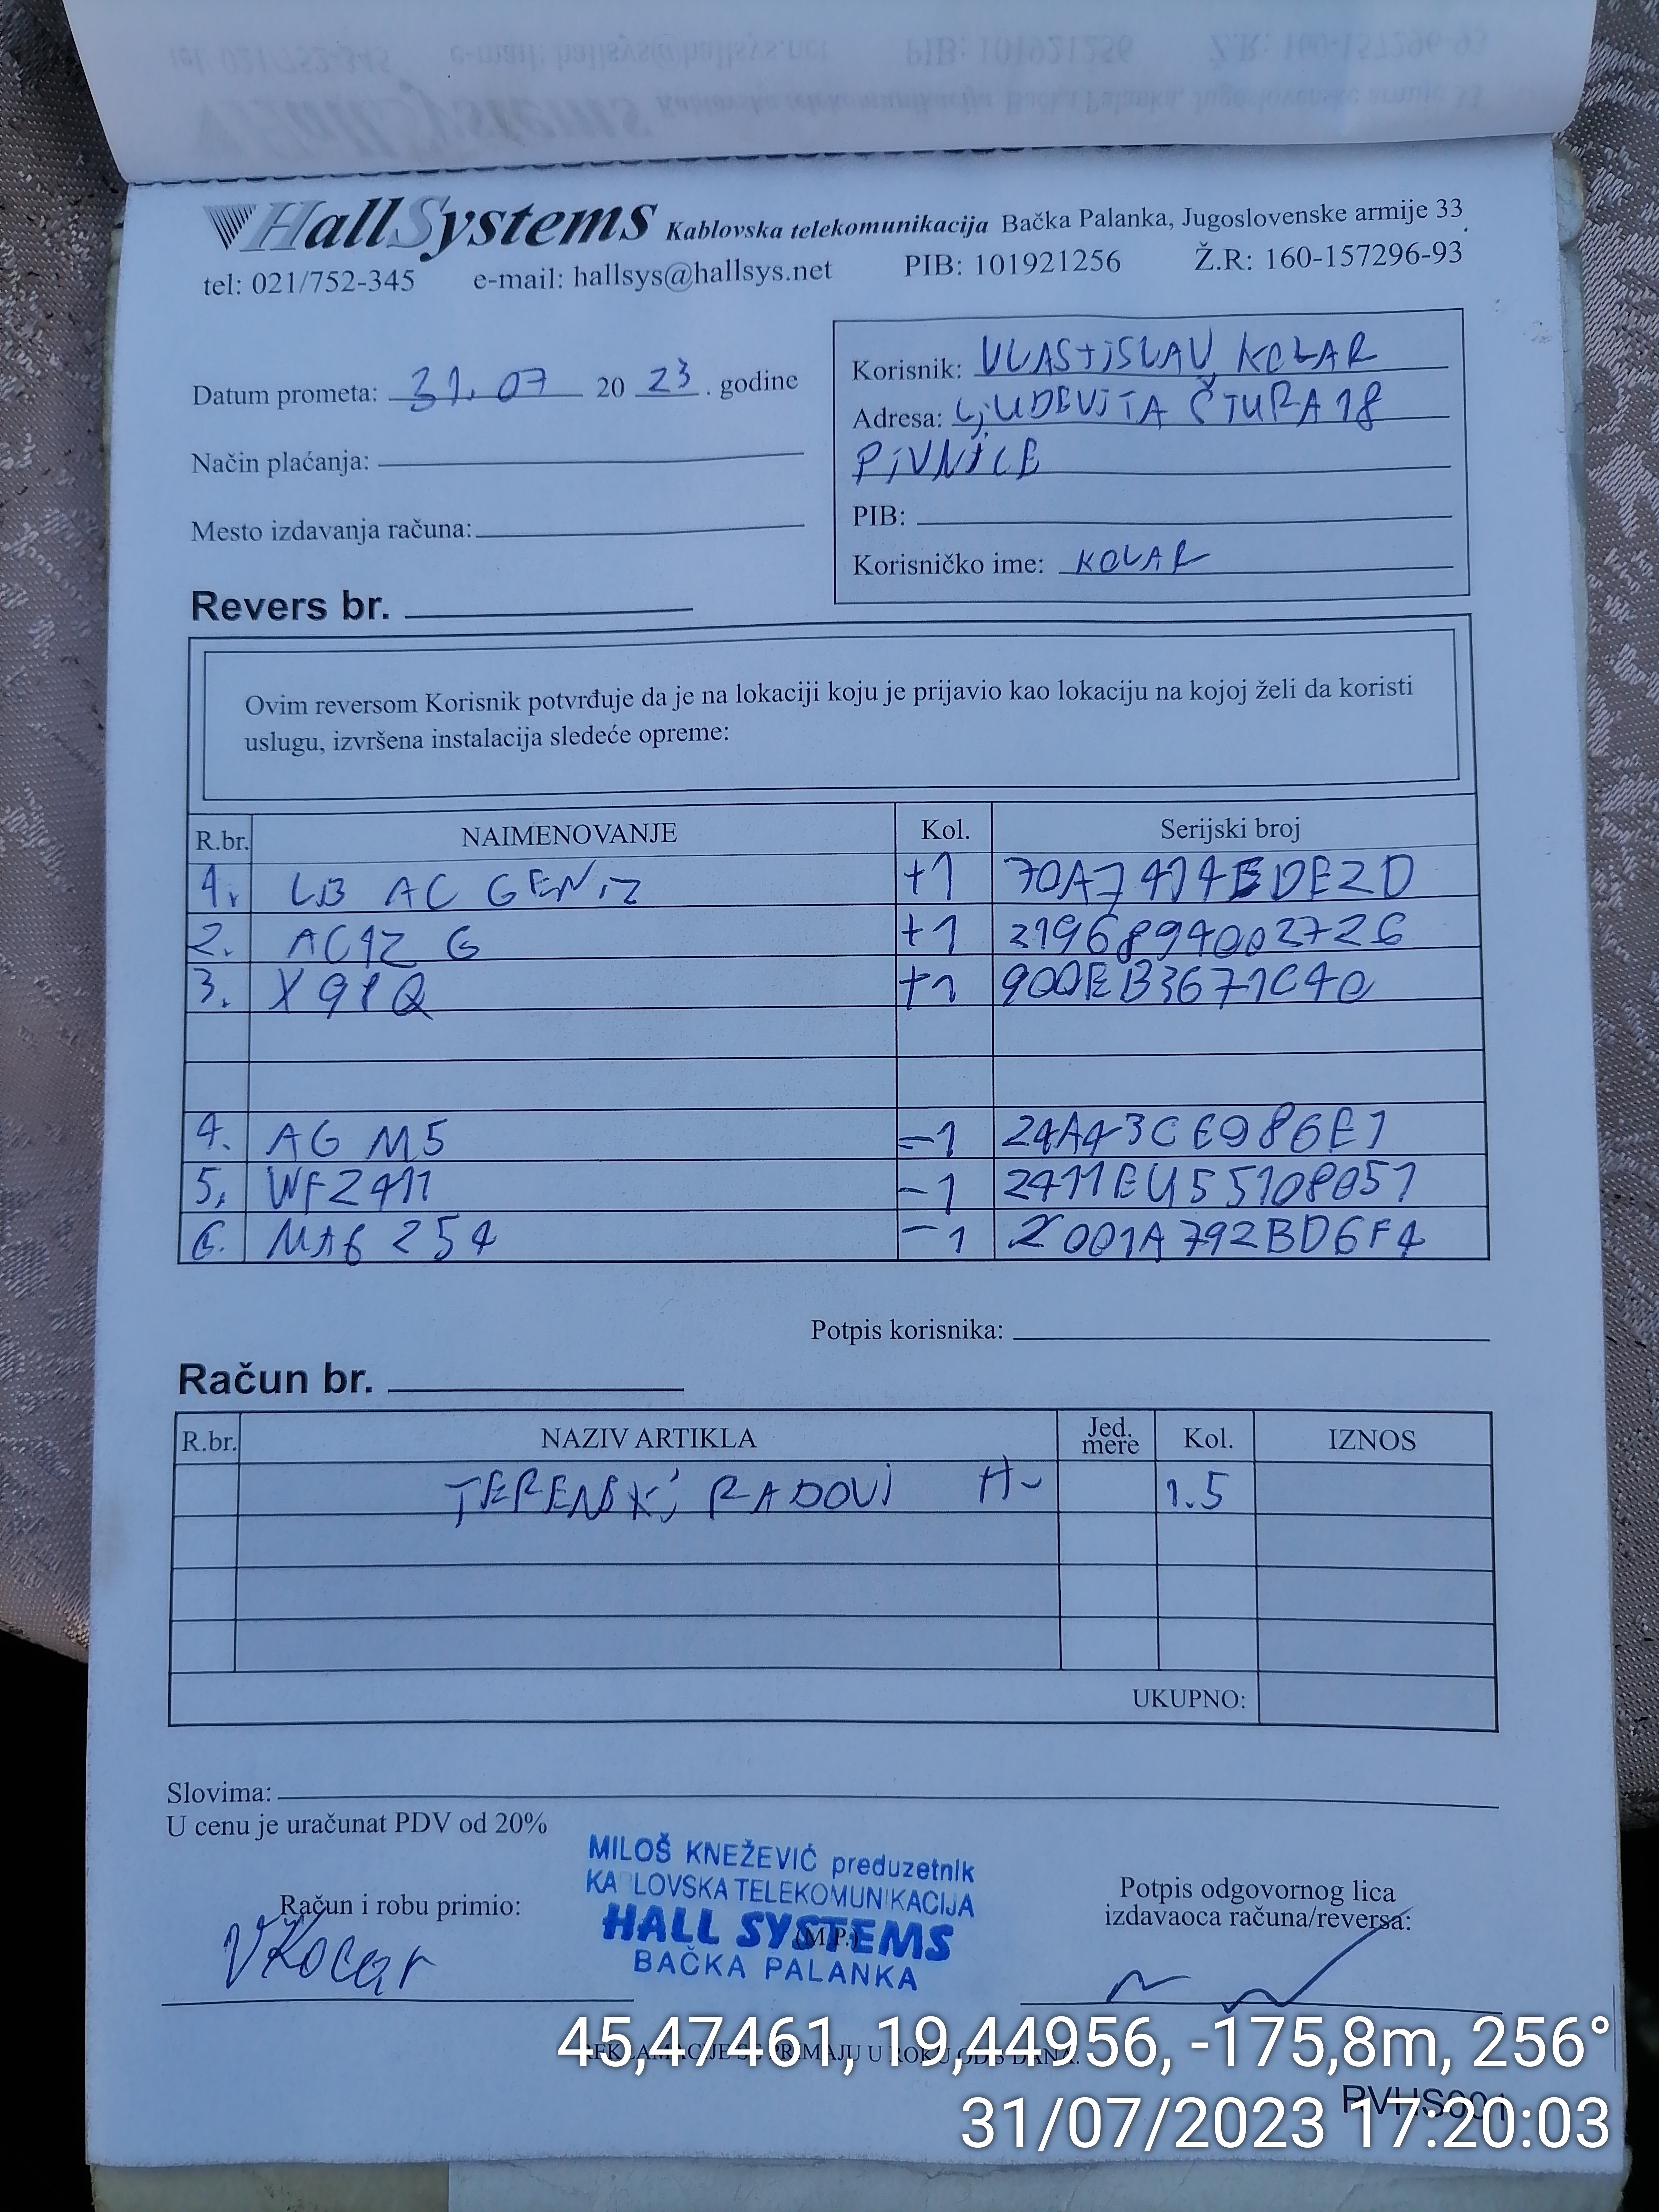 HallSystems Kablovska telekomunikacija Bačka Palanka, Jugoslovenske armije 33
tel: 021/752-345 e-mail: hallsys@hallsys.net PIB: 101921256 Ž.R: 160-157296-93
Datum prometa: 31.07 20 23 . godine
Način plaćanja:
Mesto izdavanja računa:
Korisnik: VLASTiSLAV KOLAR
Adresa: LjUDEViTA ČTURA 18
PiVNiCE
PIB:
Korisničko ime: KOLAR
Revers br.
Ovim reversom Korisnik potvrđuje da je na lokaciji koju je prijavio kao lokaciju na kojoj želi da koristi
uslugu, izvršena instalacija sledeće opreme:
R.br. NAIMENOVANJE Kol. Serijski broj
1. LB AC GEN2 +1
2. AC12 G +1 2196894002726
3. X98Q +1 900EB3671C40
4. AG M5 -1 24A43CE986E1
5. WF2411 -1 2411EU55108051
6. MAG 254 -1 001A792BD6F4
Potpis korisnika:
Račun br.
R.br. NAZIV ARTIKLA Jed. mere Kol. IZNOS
TERENSKi RADOVi H~ 1.5
UKUPNO:
Slovima:
U cenu je uračunat PDV od 20%
MILOŠ KNEŽEVIĆ preduzetnik
KA LOVSKA TELEKOMUNIKACIJA
HALL SYSTEMS
BAČKA PALANKA
(M.P.)
Račun i robu primio:
VKolar
Potpis odgovornog lica
izdavaoca računa/reversa:
REKLAMACIJE SE PRIMAJU U ROKU OD 8 DANA.
45,47461, 19,44956, -175,8m, 256°
RVHS001
31/07/2023 17:20:03